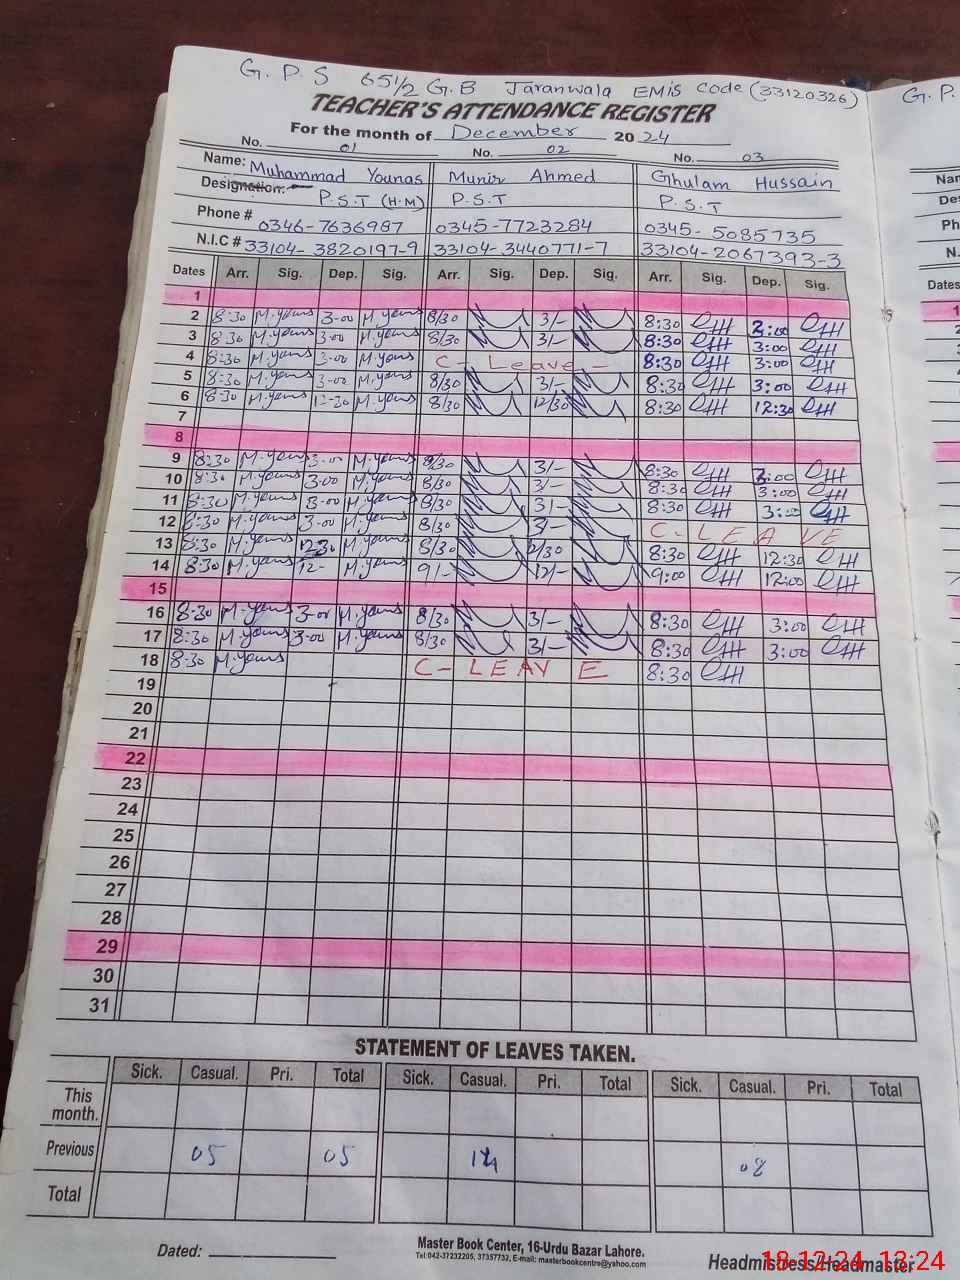 G. P. S 65 1/2 G.B Jaranwala EMIS Code (33120326)
G. P.
TEACHER'S ATTENDANCE REGISTER
For the month of December 2024
No. 01 No. 02 No. 03
Name: Muhammad Younas Munir Ahmed Ghulam Hussain
Designation: P.S.T (H.M) P.S.T P.S.T
Phone # 0346-7636987 0345-7723284 0345-5085735
N.I.C # 33104-3820197-9 33104-3440771-7 33104-2067393-3
Dates Arr. Sig. Dep. Sig. Arr. Sig. Dep. Sig. Arr. Sig. Dep. Sig.
1
2 8:30 M.Younas 3-00 M.Younas 8/30 3/- 8:30 3:00
3 8:30 M.Younas 3-00 M.Younas 8/30 3/- 8:30 3:00
4 8:30 M.Younas 3-00 M.Younas C - Leave - 8:30 3:00
5 8:30 M.Younas 3-00 M.Younas 8/30 3/- 8:30 3:00
6 8:30 M.Younas 12-30 M.Younas 8/30 12/30 8:30 12:30
7
8
9 8:30 M.Younas 3-00 M.Younas 8/30 3/- 8:30 3:00
10 8:30 M.Younas 3-00 M.Younas 8/30 3/- 8:30 3:00
11 8:30 M.Younas 3-00 M.Younas 8/30 3/- 8:30 3:00
12 8:30 M.Younas 3-00 M.Younas 8/30 3/- C - LEAVE
13 8:30 M.Younas 12-30 M.Younas 8/30 12/30 8:30 12:30
14 8:30 M.Younas 12- M.Younas 9/- 12/- 9:00 12:00
15
16 8:30 M.Younas 3-00 M.Younas 8/30 3/- 8:30 3:00
17 8:30 M.Younas 3-00 M.Younas 8/30 3/- 8:30 3:00
18 8:30 M.Younas C - LEAVE 8:30
19
20
21
22
23
24
25
26
27
28
29
30
31
STATEMENT OF LEAVES TAKEN.
Sick. Casual. Pri. Total Sick. Casual. Pri. Total Sick. Casual. Pri. Total
This month.
Previous 05 05 14 08
Total
Dated:
Master Book Center, 16-Urdu Bazar Lahore.
Tel: 042-37232205, 37357732, E-mail: masterbookcentre@yahoo.com
Headmistress/Headmaster
18-12-24 12:24
Nam
Des
Ph
N.
Dates